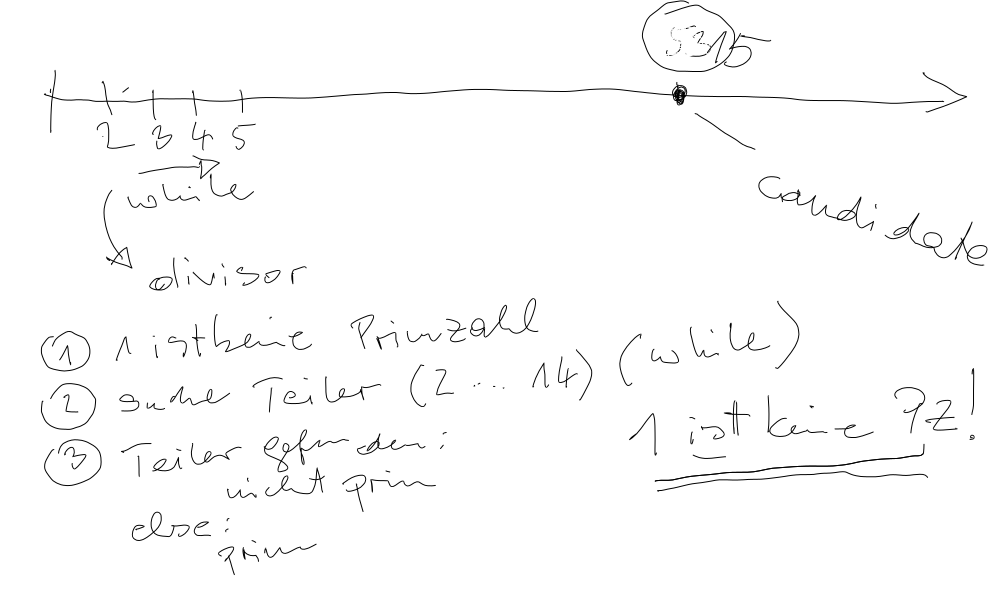 5315
2 3 4 5
while
candidate
divisor
① 1 ist keine Primzahl
② suche Teiler (2 ... 14) (while)
③ Teiler gefunden:
nicht prim
else:
prim
1 ist keine PZ!